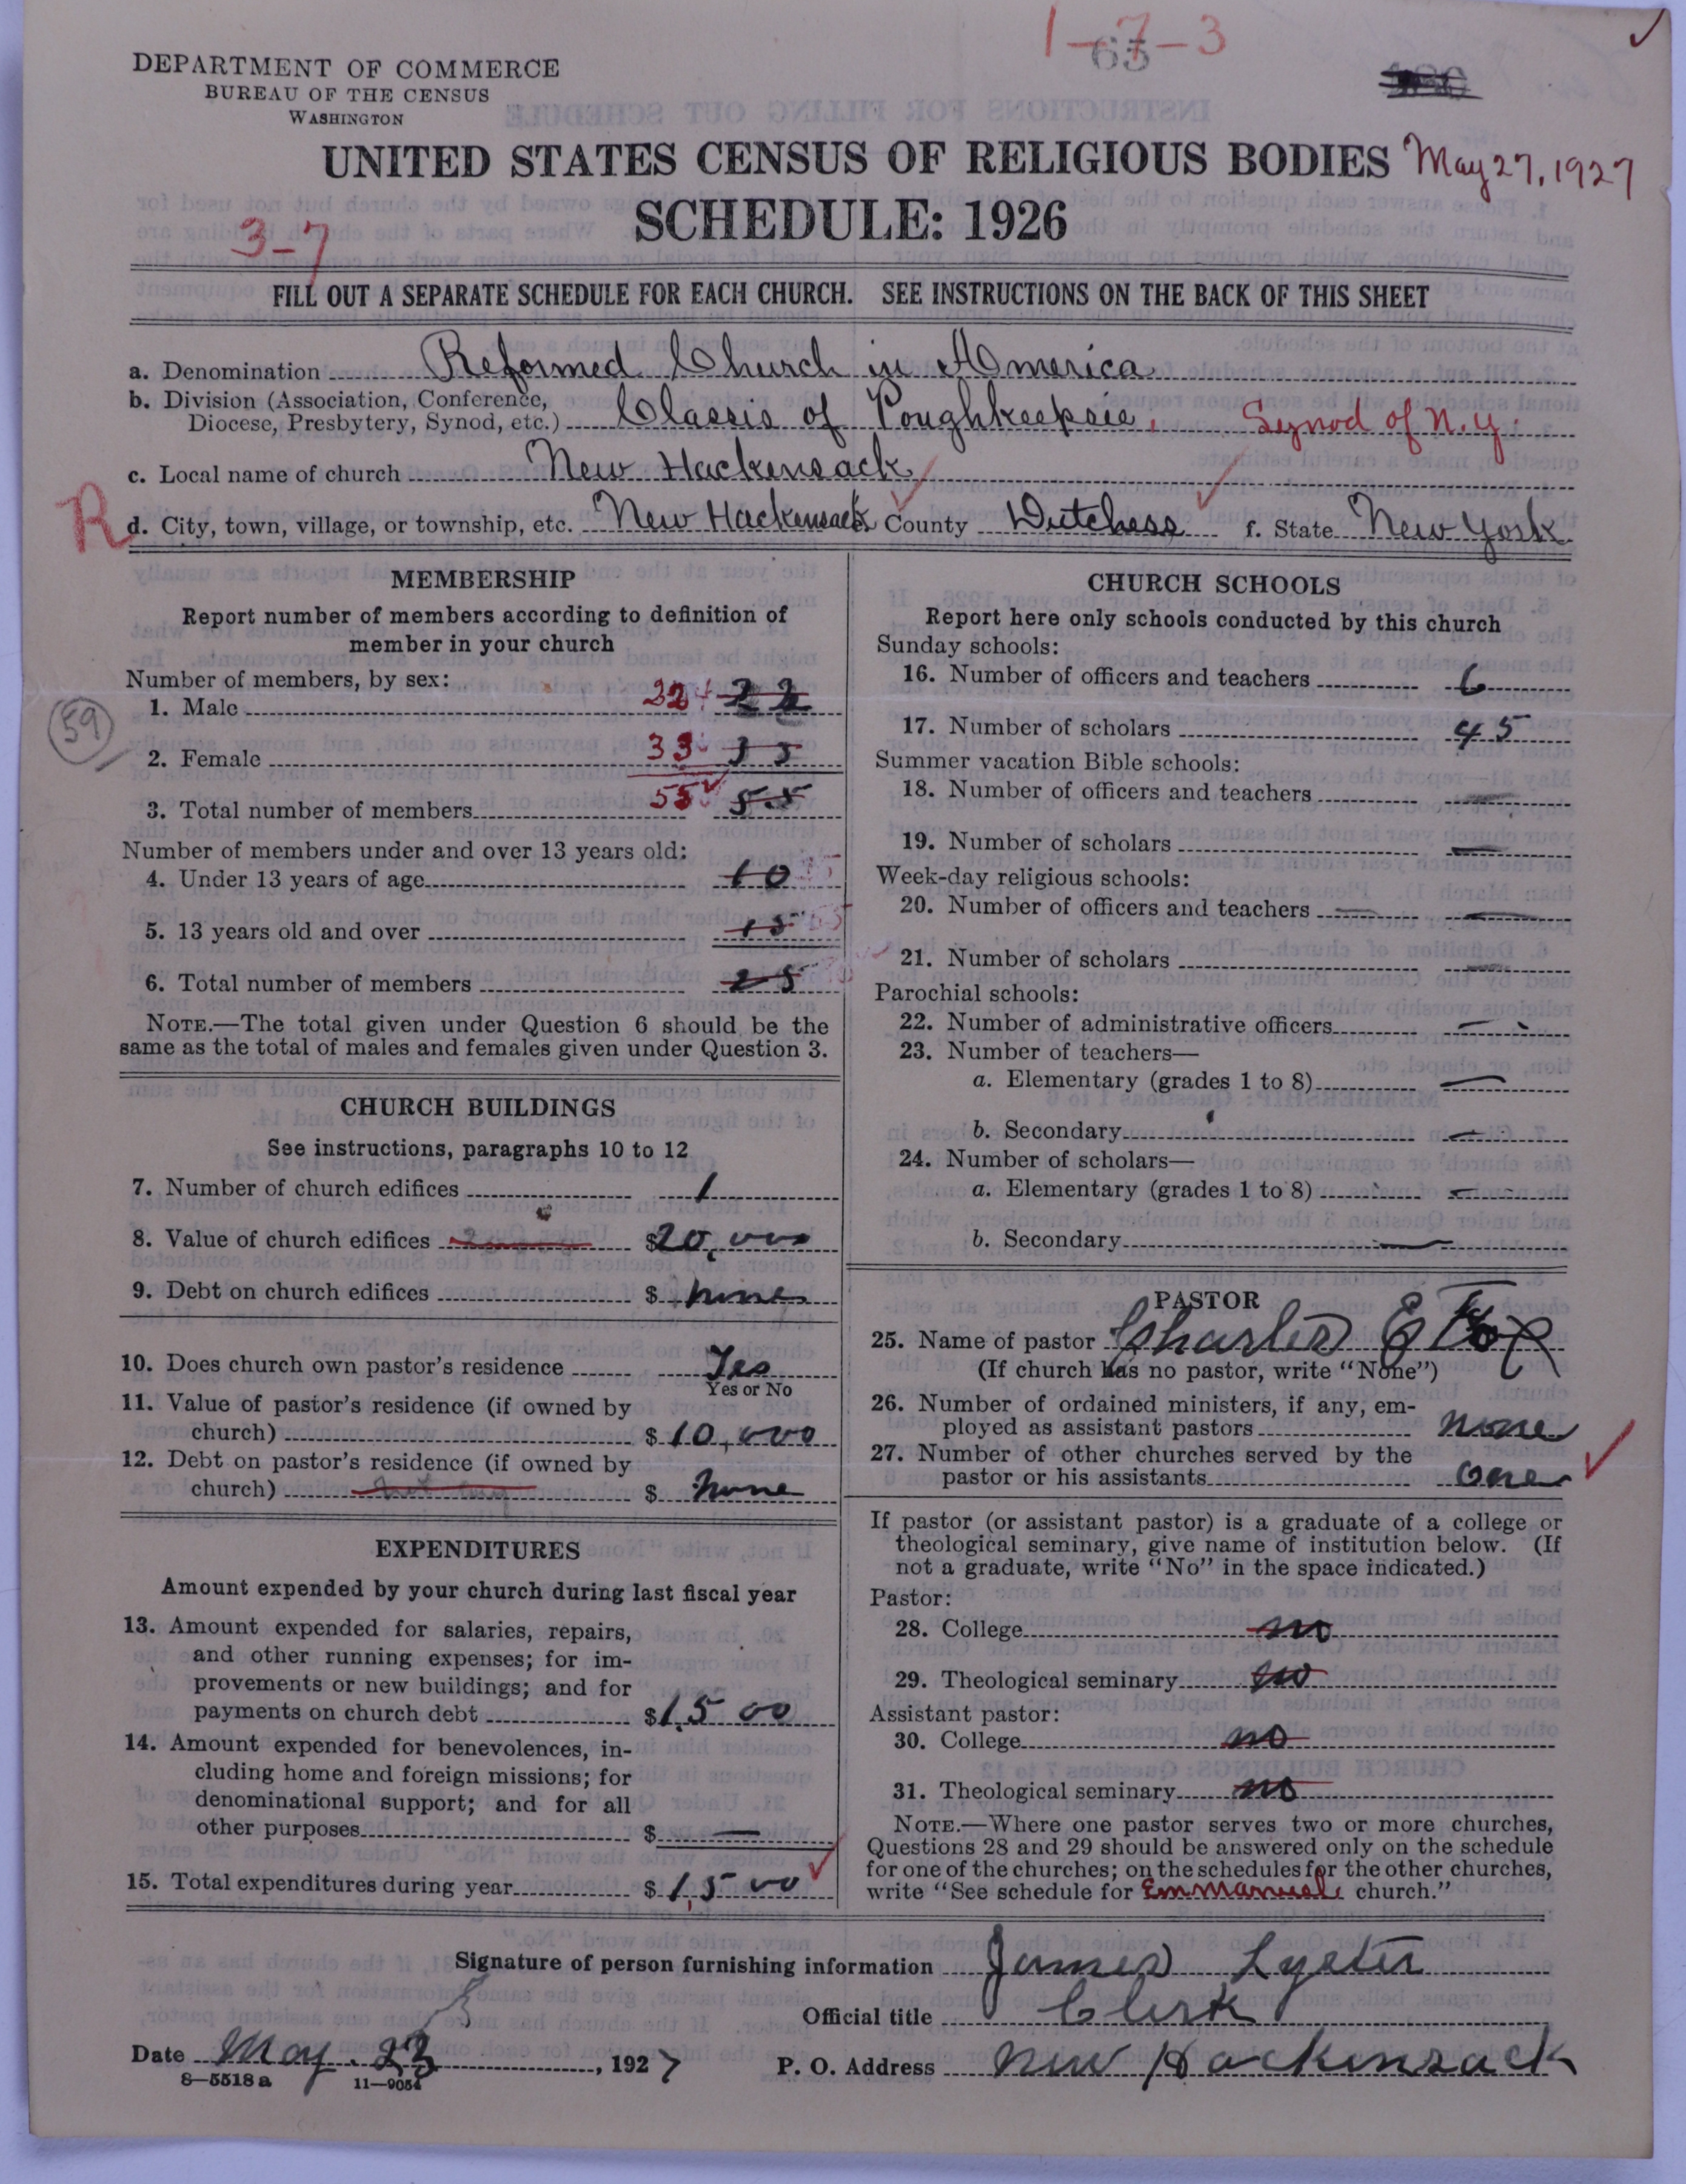 1-7-3
65
DEPARTMENT OF COMMERCE
BUREAU OF THE CENSUS
WASHINGTON
UNITED STATES CENSUS OF RELIGIOUS BODIES May 27, 1927
SCHEDULE: 1926
3-7
FILL OUT A SEPARATE SCHEDULE FOR EACH CHURCH. SEE INSTRUCTIONS ON THE BACK OF THIS SHEET
a. Denomination Reformed Church in America
b. Division (Association, Conference,
Diocese, Presbytery, Synod, etc.) Classis of Poughkeepsie, Synod of N.Y.
c. Local name of church New Hackensack
R d. City, town, village, or township, etc. New Hackensack County Dutchess f. State New York
MEMBERSHIP
Report number of members according to definition of
member in your church
Number of members, by sex:
1. Male 22 22
59
2. Female 33 33
3. Total number of members 55 55
Number of members under and over 13 years old:
4. Under 13 years of age 10
5. 13 years old and over 15
6. Total number of members 25
NOTE.—The total given under Question 6 should be the
same as the total of males and females given under Question 3.
CHURCH BUILDINGS
See instructions, paragraphs 10 to 12
7. Number of church edifices 1
8. Value of church edifices $20,000
9. Debt on church edifices $ none
10. Does church own pastor's residence Yes
Yes or No
11. Value of pastor's residence (if owned by
church) $10,000
12. Debt on pastor's residence (if owned by
church) $ none
EXPENDITURES
Amount expended by your church during last fiscal year
13. Amount expended for salaries, repairs,
and other running expenses; for im-
provements or new buildings; and for
payments on church debt $1,500
14. Amount expended for benevolences, in-
cluding home and foreign missions; for
denominational support; and for all
other purposes $ —
15. Total expenditures during year $1,500
CHURCH SCHOOLS
Report here only schools conducted by this church
Sunday schools:
16. Number of officers and teachers 6
17. Number of scholars 45
Summer vacation Bible schools:
18. Number of officers and teachers —
19. Number of scholars —
Week-day religious schools:
20. Number of officers and teachers —
21. Number of scholars —
Parochial schools:
22. Number of administrative officers —
23. Number of teachers—
a. Elementary (grades 1 to 8) —
b. Secondary —
24. Number of scholars—
a. Elementary (grades 1 to 8) —
b. Secondary —
PASTOR
25. Name of pastor Charles E Fox
(If church has no pastor, write "None")
26. Number of ordained ministers, if any, em-
ployed as assistant pastors none
27. Number of other churches served by the
pastor or his assistants One
If pastor (or assistant pastor) is a graduate of a college or
theological seminary, give name of institution below. (If
not a graduate, write "No" in the space indicated.)
Pastor:
28. College no
29. Theological seminary no
Assistant pastor:
30. College no
31. Theological seminary no
NOTE.—Where one pastor serves two or more churches,
Questions 28 and 29 should be answered only on the schedule
for one of the churches; on the schedules for the other churches,
write "See schedule for Emmanuel church."
Signature of person furnishing information James Lyster
Official title Clerk
Date May 23, 1927 P. O. Address New Hackensack
8—5518 a 11—9054